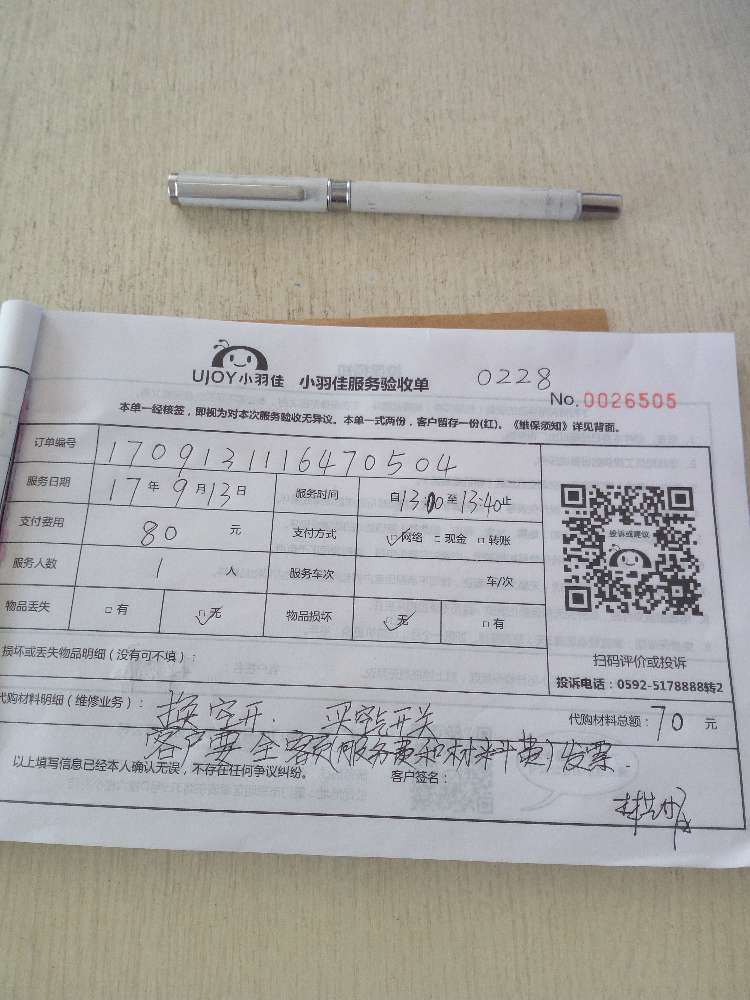 UJOY小羽佳 小羽佳服务验收单 0228
No. 0026505
本单一经核签，即视为对本次服务验收无异议。本单一式两份，客户留存一份(红)。《维保须知》详见背面。
订单编号 1709131116470504
服务日期 17年9月13日 服务时间 自13:10至13:40止
支付费用 80 元 支付方式 网络 □现金 □转账
服务人数 1 人 服务车次 车/次
物品丢失 □有 □无 物品损坏 □无 □有
投诉或建议
扫码评价或投诉
投诉电话：0592-5178888转2
损坏或丢失物品明细（没有可不填）：
代购材料明细（维修业务）： 换空开. 买空气开关 代购材料总额：70 元
客户要全额(服务费和材料费)发票.
以上填写信息已经本人确认无误，不存在任何争议纠纷。 客户签名：